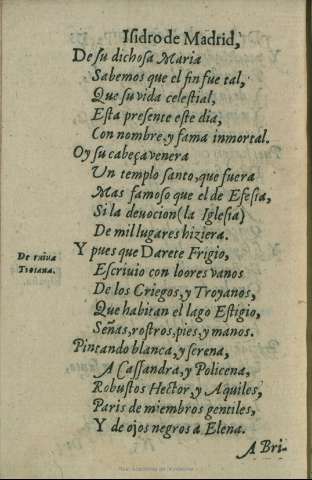 Isidro de Madrid,
De su dichosa Maria
Sabemos que el fin fue tal,
Que su vida celestial,
Esta presente este dia,
Con nombre, y fama inmortal.
Oy su cabeça venera
Un templo santo, que fuera
Mas famoso que el de Efesia,
Si la deuocion (la Iglesia)
De mil lugares hiziera.
Y pues que Darete Frigio,
De ruina
Escriuio con loores vanos
Troiana.
De los Griegos, y Troyanos,
Que habitan el lago Estigio,
Señas, rostros, pies, y manos.
Pintando blanca, y serena,
A Cassandra, y Policena,
Robustos Hector, y Aquiles,
Paris de miembros gentiles,
Y de ojos negros a Elena.
A Bri-